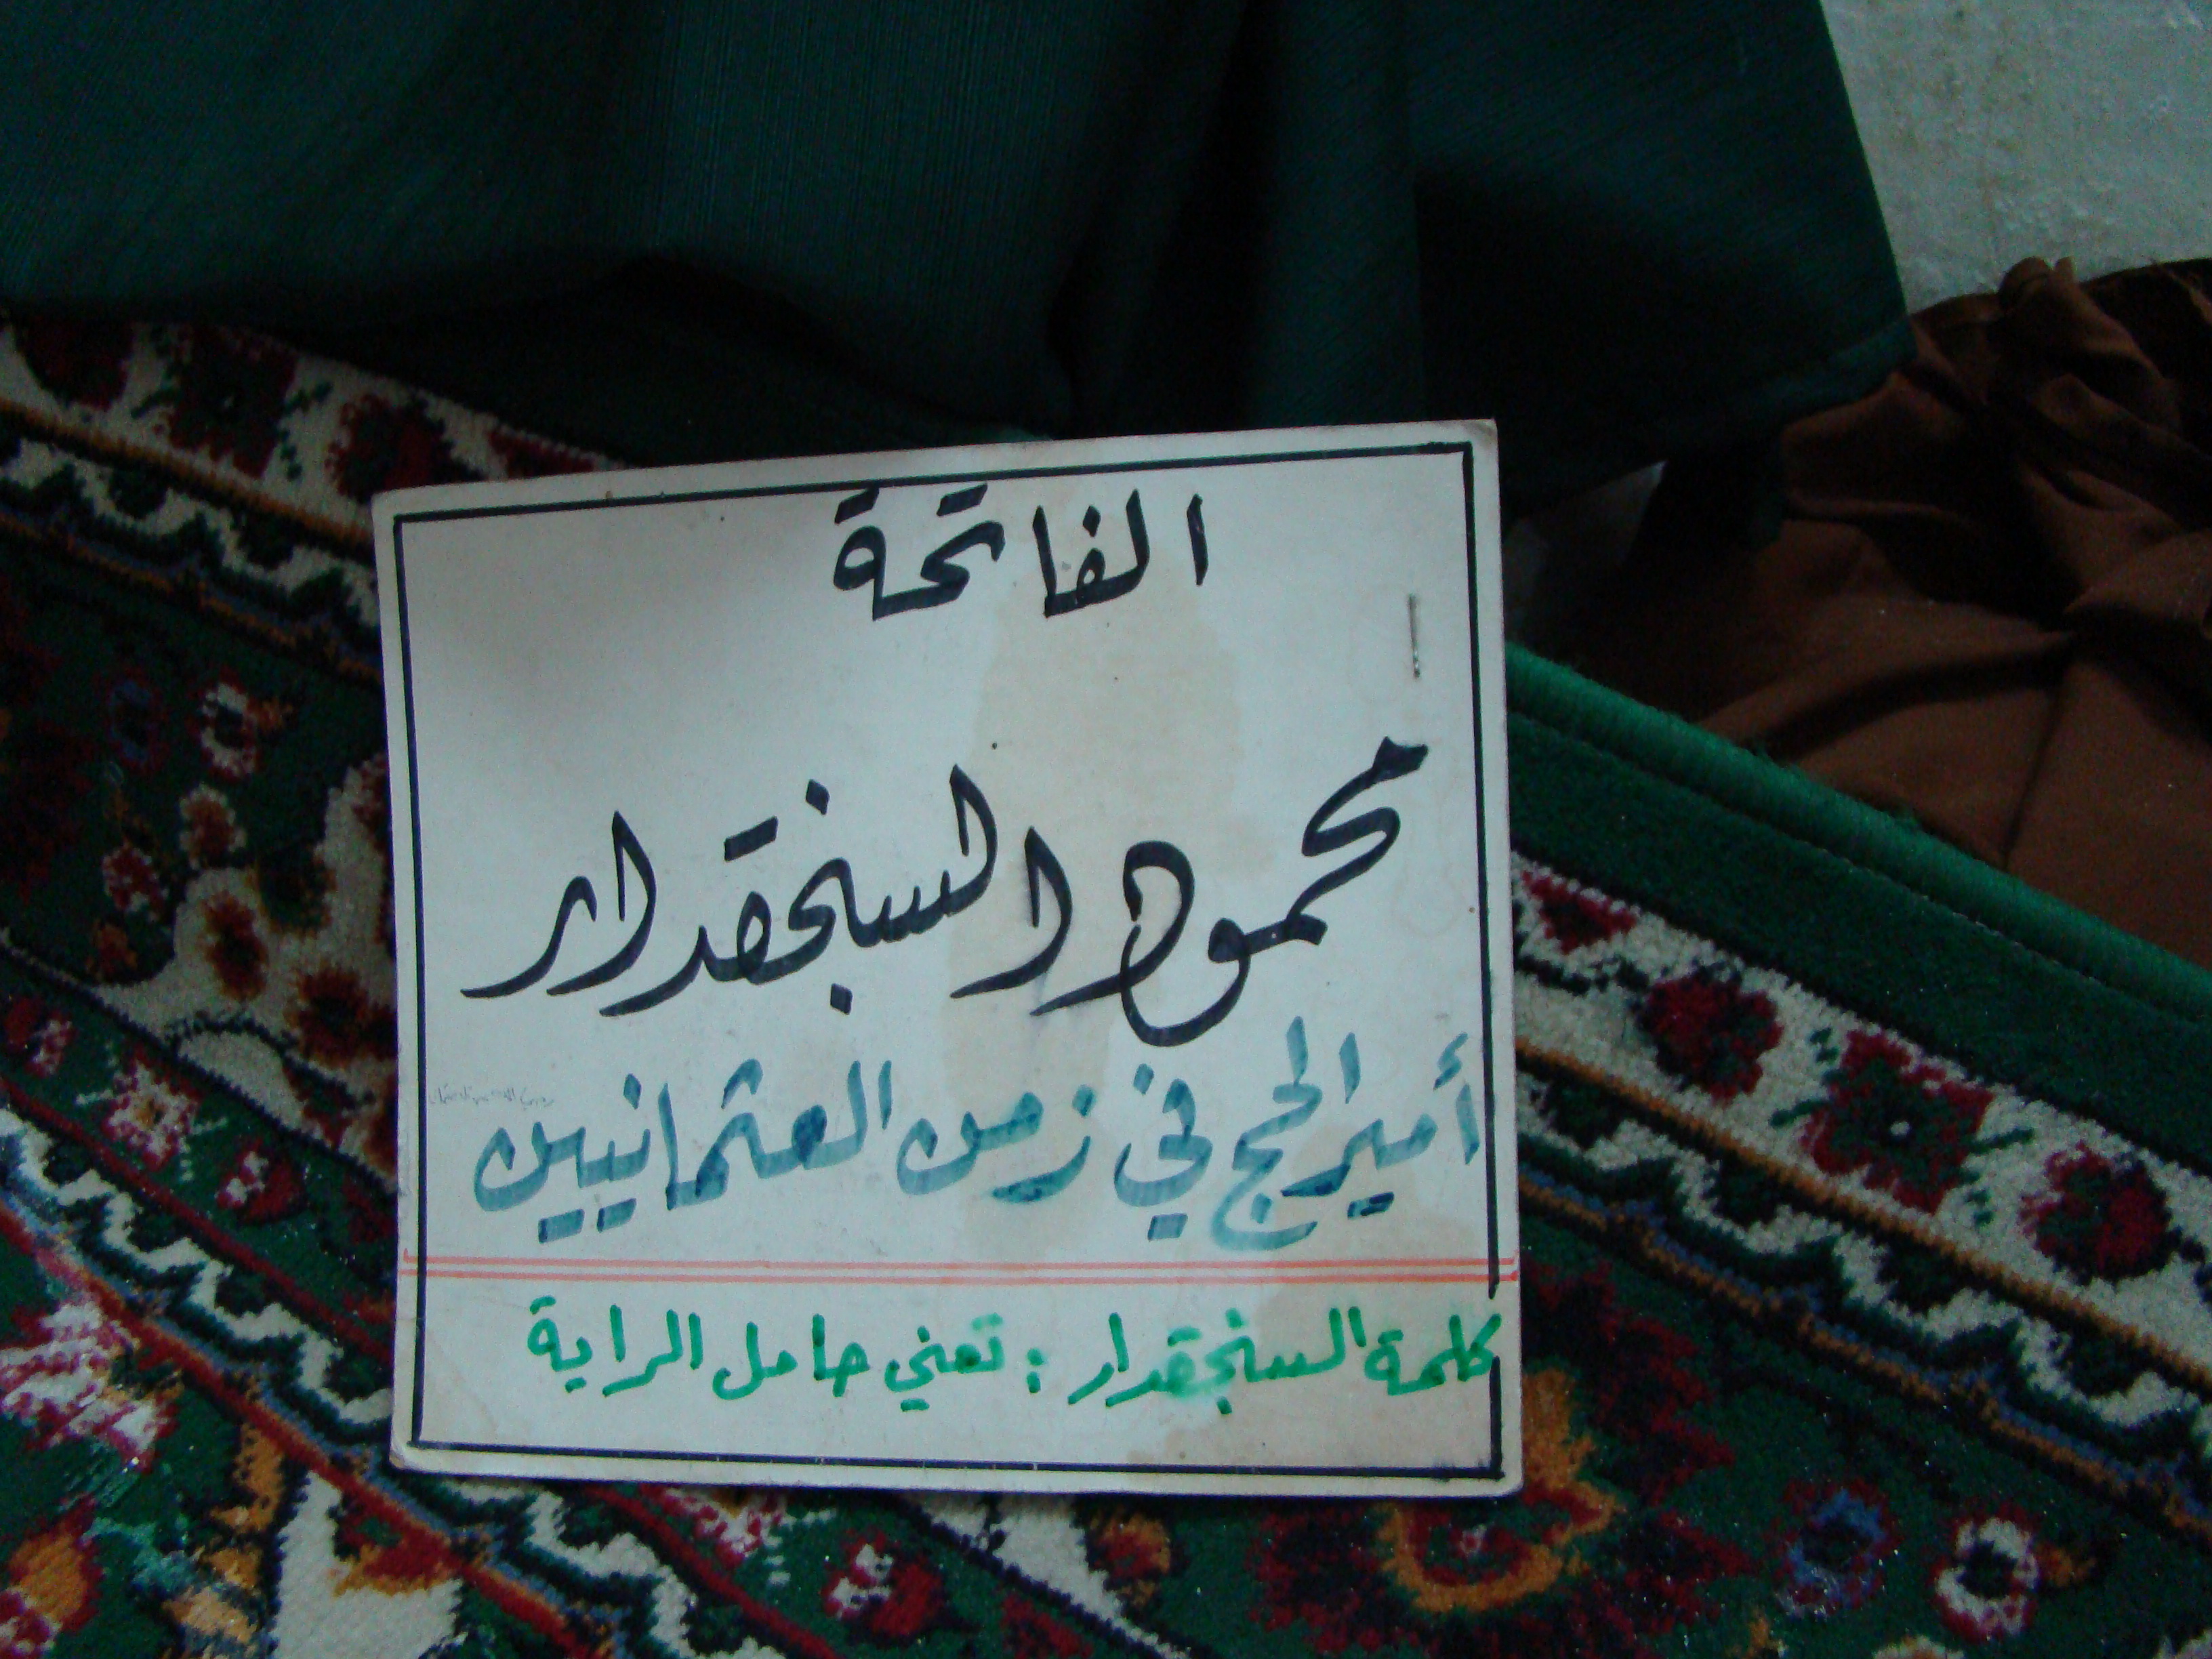 الفاتحة
محمود السنجقدار
أمير الحج في زمن العثمانيين
كلمة السنجقدار : تعني حامل الراية